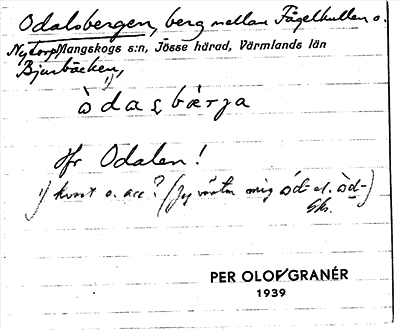 Odalsbergen, berg mellan Fågelkullen o.
Nytorp Mangskogs s:n, Jösse härad, Värmlands län
Bjurbäcken,
1)
òdasbærja
Jfr Odalen!
1) kvant o. acc? (Jag väntar mig ód- el. òd-)
Gks.
PER OLOF GRANÉR
1939